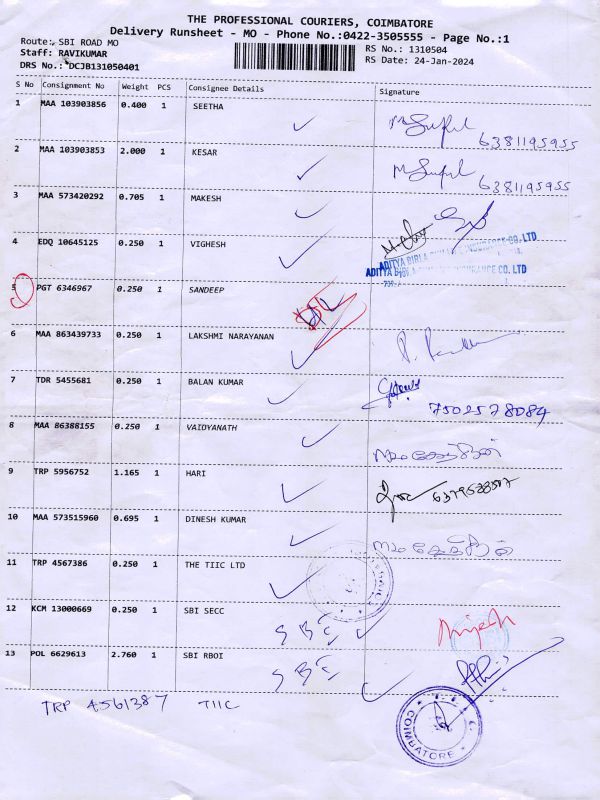 THE PROFESSIONAL COURIERS, COIMBATORE
Delivery Runsheet - MO - Phone No.:0422-3505555 - Page No.:1
Route: SBI ROAD MO
RS No.: 1310504
Staff: RAVIKUMAR
RS Date: 24-Jan-2024
DRS No.: DCJB131050401
S No Consignment No Weight PCS Consignee Details Signature
1 MAA 103903856 0.400 1 SEETHA
6381195955
2 MAA 103903853 2.000 1 KESAR
6381195955
3 MAA 573420292 0.705 1 MAKESH
4 EDQ 10645125 0.250 1 VIGHESH
ADITYA BIRLA INSURANCE CO. LTD
ADITYA INSURANCE CO. LTD
5 PGT 6346967 0.250 1 SANDEEP
6 MAA 863439733 0.250 1 LAKSHMI NARAYANAN
7 TDR 5455681 0.250 1 BALAN KUMAR
7502578084
8 MAA 86388155 0.250 1 VAIDYANATH
9 TRP 5956752 1.165 1 HARI
10 MAA 573515960 0.695 1 DINESH KUMAR
11 TRP 4567386 0.250 1 THE TIIC LTD
12 KCM 13000669 0.250 1 SBI SECC
SBI
13 POL 6629613 2.760 1 SBI RBOI
SBI
TRP 4561387 TIIC
COIMBATORE